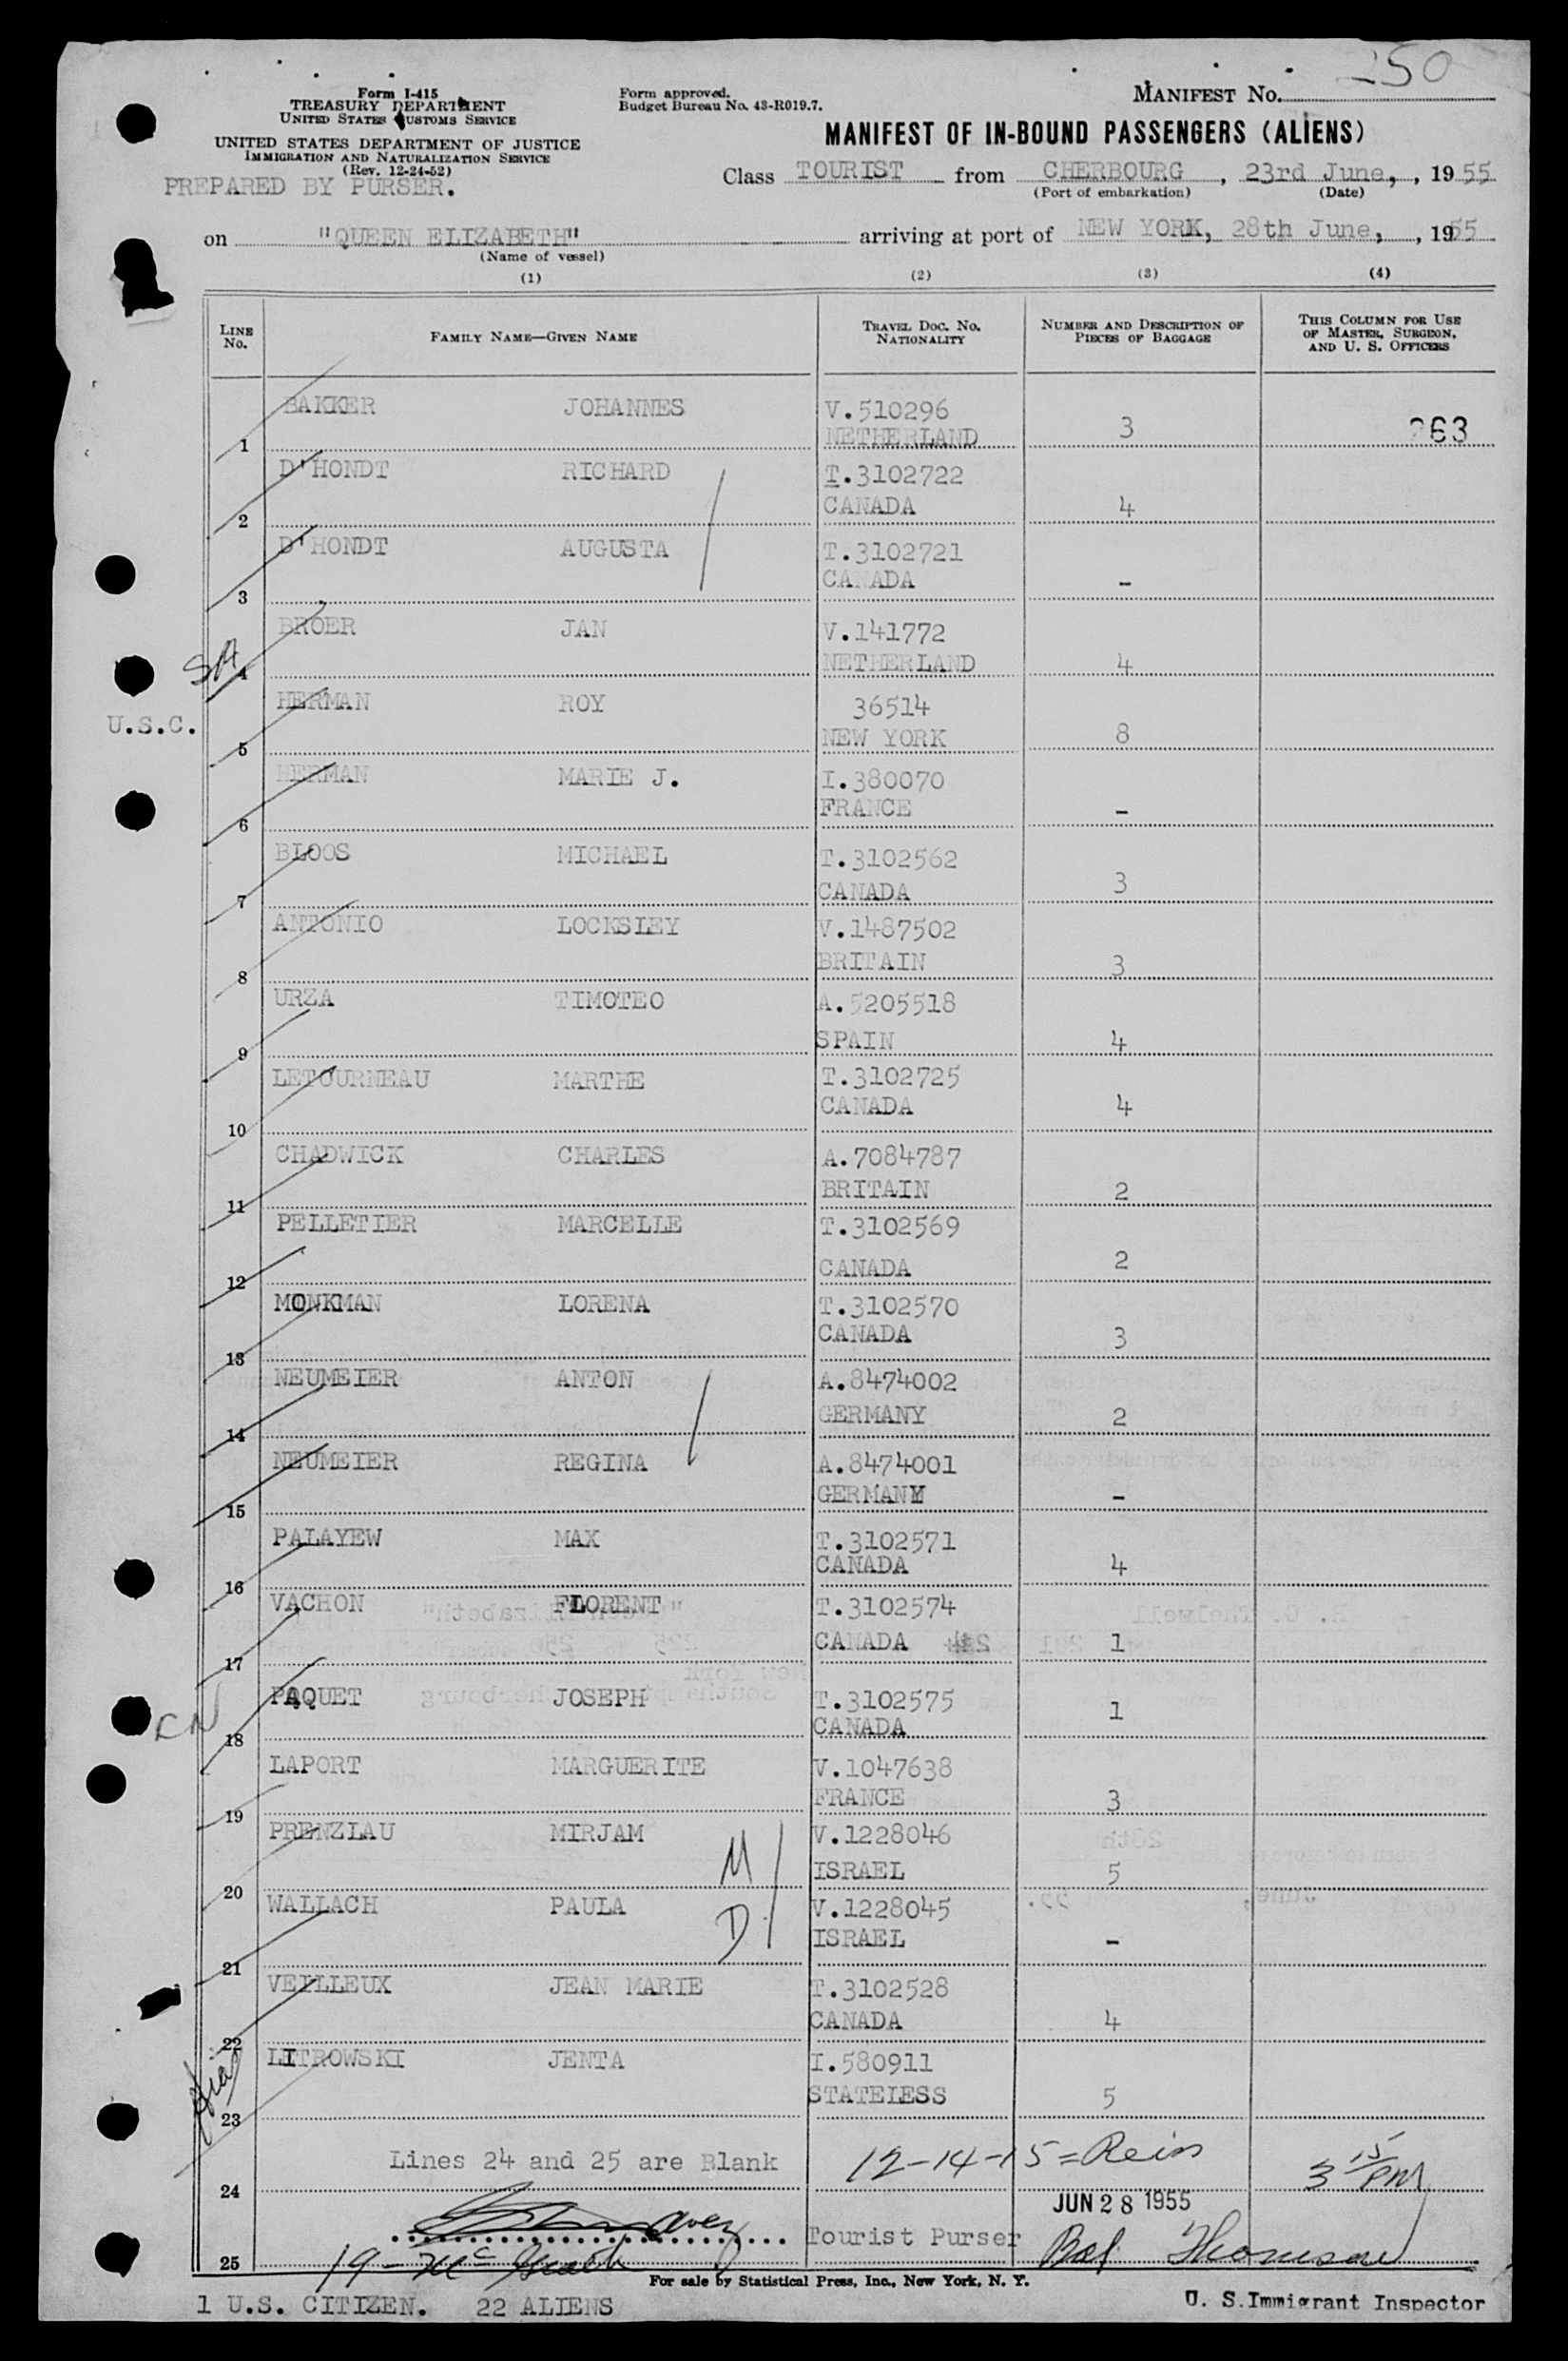 250
Form I-415
TREASURY DEPARTMENT
UNITED STATES CUSTOMS SERVICE
UNITED STATES DEPARTMENT OF JUSTICE
IMMIGRATION AND NATURALIZATION SERVICE
(Rev. 12-24-52)
PREPARED BY PURSER.
Form approved.
Budget Bureau No. 43-R019.7.
MANIFEST NO.
MANIFEST OF IN-BOUND PASSENGERS (ALIENS)
Class TOURIST from CHERBOURG, 23rd June, , 1955
(Port of embarkation) (Date)
on "QUEEN ELIZABETH" arriving at port of NEW YORK, 28th June, , 1955
(Name of vessel)
(1) (2) (3) (4)
LINE NO. FAMILY NAME—GIVEN NAME TRAVEL DOC. NO. NATIONALITY NUMBER AND DESCRIPTION OF PIECES OF BAGGAGE THIS COLUMN FOR USE OF MASTER, SURGEON, AND U. S. OFFICERS
1 BAKKER JOHANNES V.510296 NETHERLAND 3 263
2 D'HONDT RICHARD T.3102722 CANADA 4
3 D'HONDT AUGUSTA T.3102721 CANADA -
SA 4 BROER JAN V.141772 NETHERLAND 4
U.S.C. 5 HERMAN ROY 36514 NEW YORK 8
6 HERMAN MARIE J. I.380070 FRANCE -
7 BLOOS MICHAEL T.3102562 CANADA 3
8 ANTONIO LOCKSLEY V.1487502 BRITAIN 3
9 URZA TIMOTEO A.5205518 SPAIN 4
10 LETOURNEAU MARTHE T.3102725 CANADA 4
11 CHADWICK CHARLES A.7084787 BRITAIN 2
12 PELLETIER MARCELLE T.3102569 CANADA 2
13 MONKMAN LORENA T.3102570 CANADA 3
14 NEUMEIER ANTON A.8474002 GERMANY 2
15 NEUMEIER REGINA A.8474001 GERMANY -
16 PALAYEW MAX T.3102571 CANADA 4
17 VACHON FLORENT T.3102574 CANADA 1
18 PAQUET JOSEPH T.3102575 CANADA 1
19 LAPORT MARGUERITE V.1047638 FRANCE 3
20 PRENZLAU MIRJAM M V.1228046 ISRAEL 5
21 WALLACH PAULA D V.1228045 ISRAEL -
22 VEILLEUX JEAN MARIE T.3102528 CANADA 4
23 LITROWSKI JENTA I.580911 STATELESS 5
24 Lines 24 and 25 are Blank 12-14-15= Rein 3 15 PM
JUN 28 1955
Tourist Purser
25 19- Thomson
For sale by Statistical Press, Inc., New York, N. Y.
1 U.S. CITIZEN. 22 ALIENS U. S.Immigrant Inspector